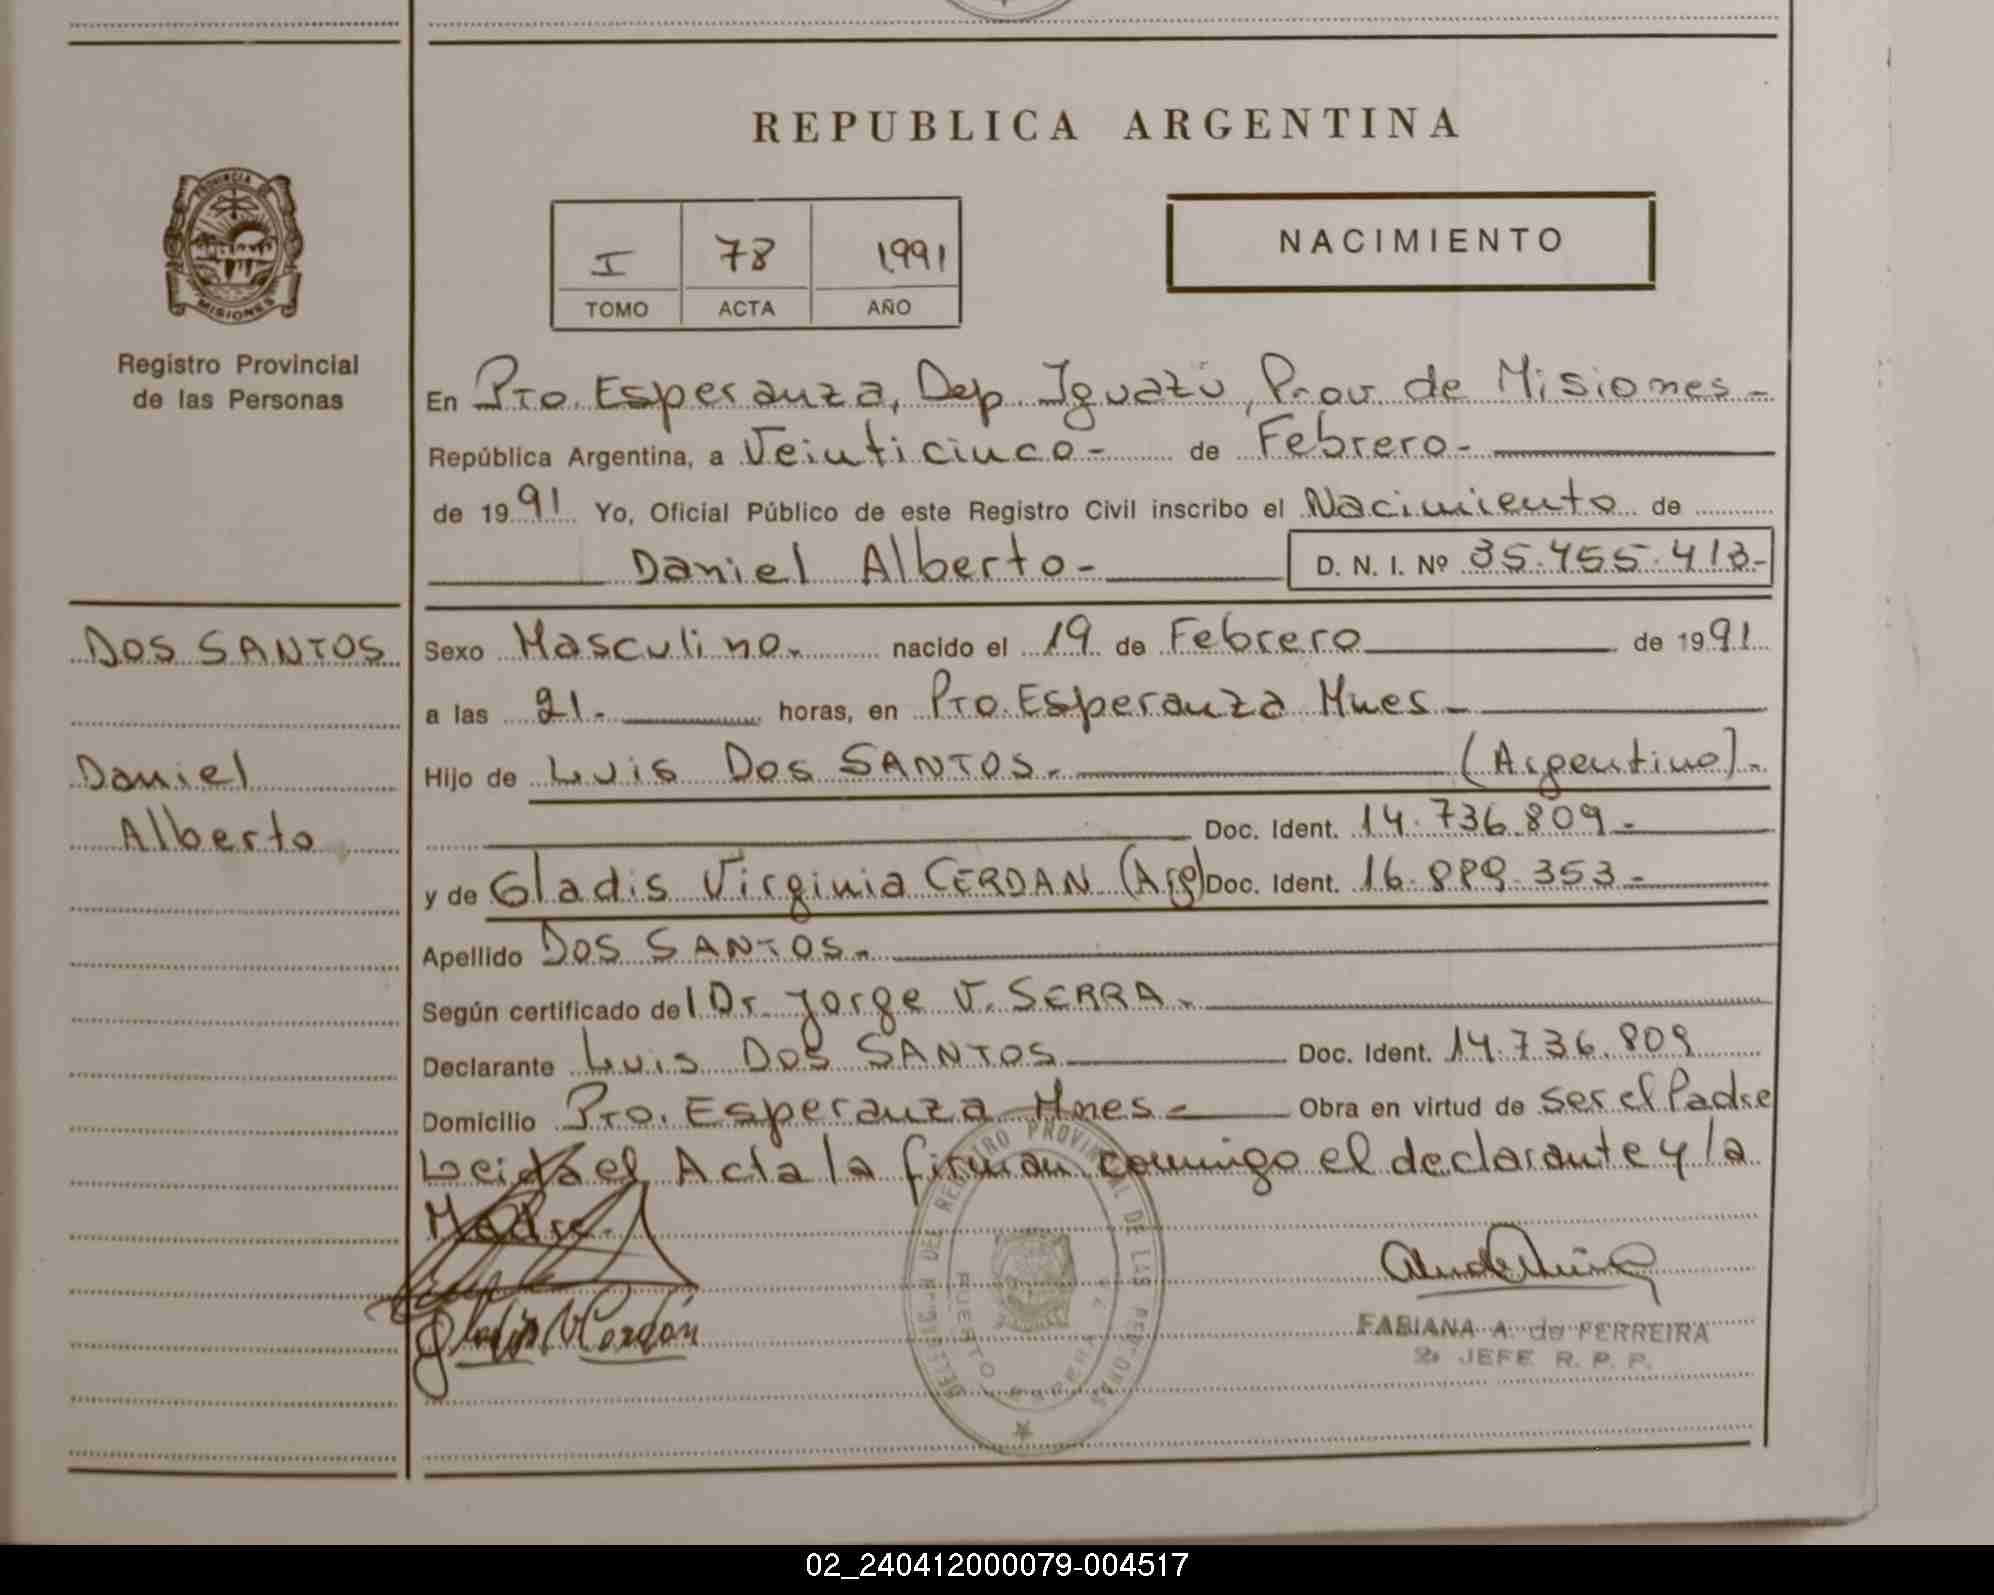 REPUBLICA ARGENTINA
PROVINCIA DE
MISIONES
Registro Provincial
de las Personas
I 78 1991
TOMO ACTA AÑO
NACIMIENTO
En Pto. Esperanza, Dep. Iguazú, Prov. de Misiones -
República Argentina, a Veinticinco - de Febrero -
de 1991 Yo, Oficial Público de este Registro Civil inscribo el Nacimiento de
Daniel Alberto - D. N. I. Nº 35.455.413-
DOS SANTOS
Daniel
Alberto
Sexo Masculino. nacido el 19 de Febrero de 1991
a las 21. horas, en Pto. Esperanza Mnes -
Hijo de Luis Dos SANTOS. (Argentino).-
Doc. Ident. 14.736.809 -
y de Gladis Virginia CERDAN (Arg) Doc. Ident. 16.889.353 -
Apellido DOS SANTOS.
Según certificado del Dr. Jorge V. SERRA.
Declarante Luis Dos SANTOS Doc. Ident. 14.736.809
Domicilio Pto. Esperanza Mnes - Obra en virtud de ser el Padre
Leida el Acta la firman conmigo el declarante y la
Madre.
DELEGACION DEL REGISTRO PROVINCIAL DE LAS PERSONAS
PUERTO ESPERANZA
Gladis V Cerdán
FABIANA A. de FERREIRA
2º JEFE R. P. P.
02_240412000079-004517